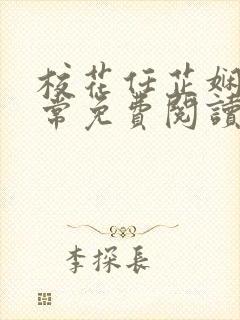 校花任芷娴
常免費閱讀
李探長